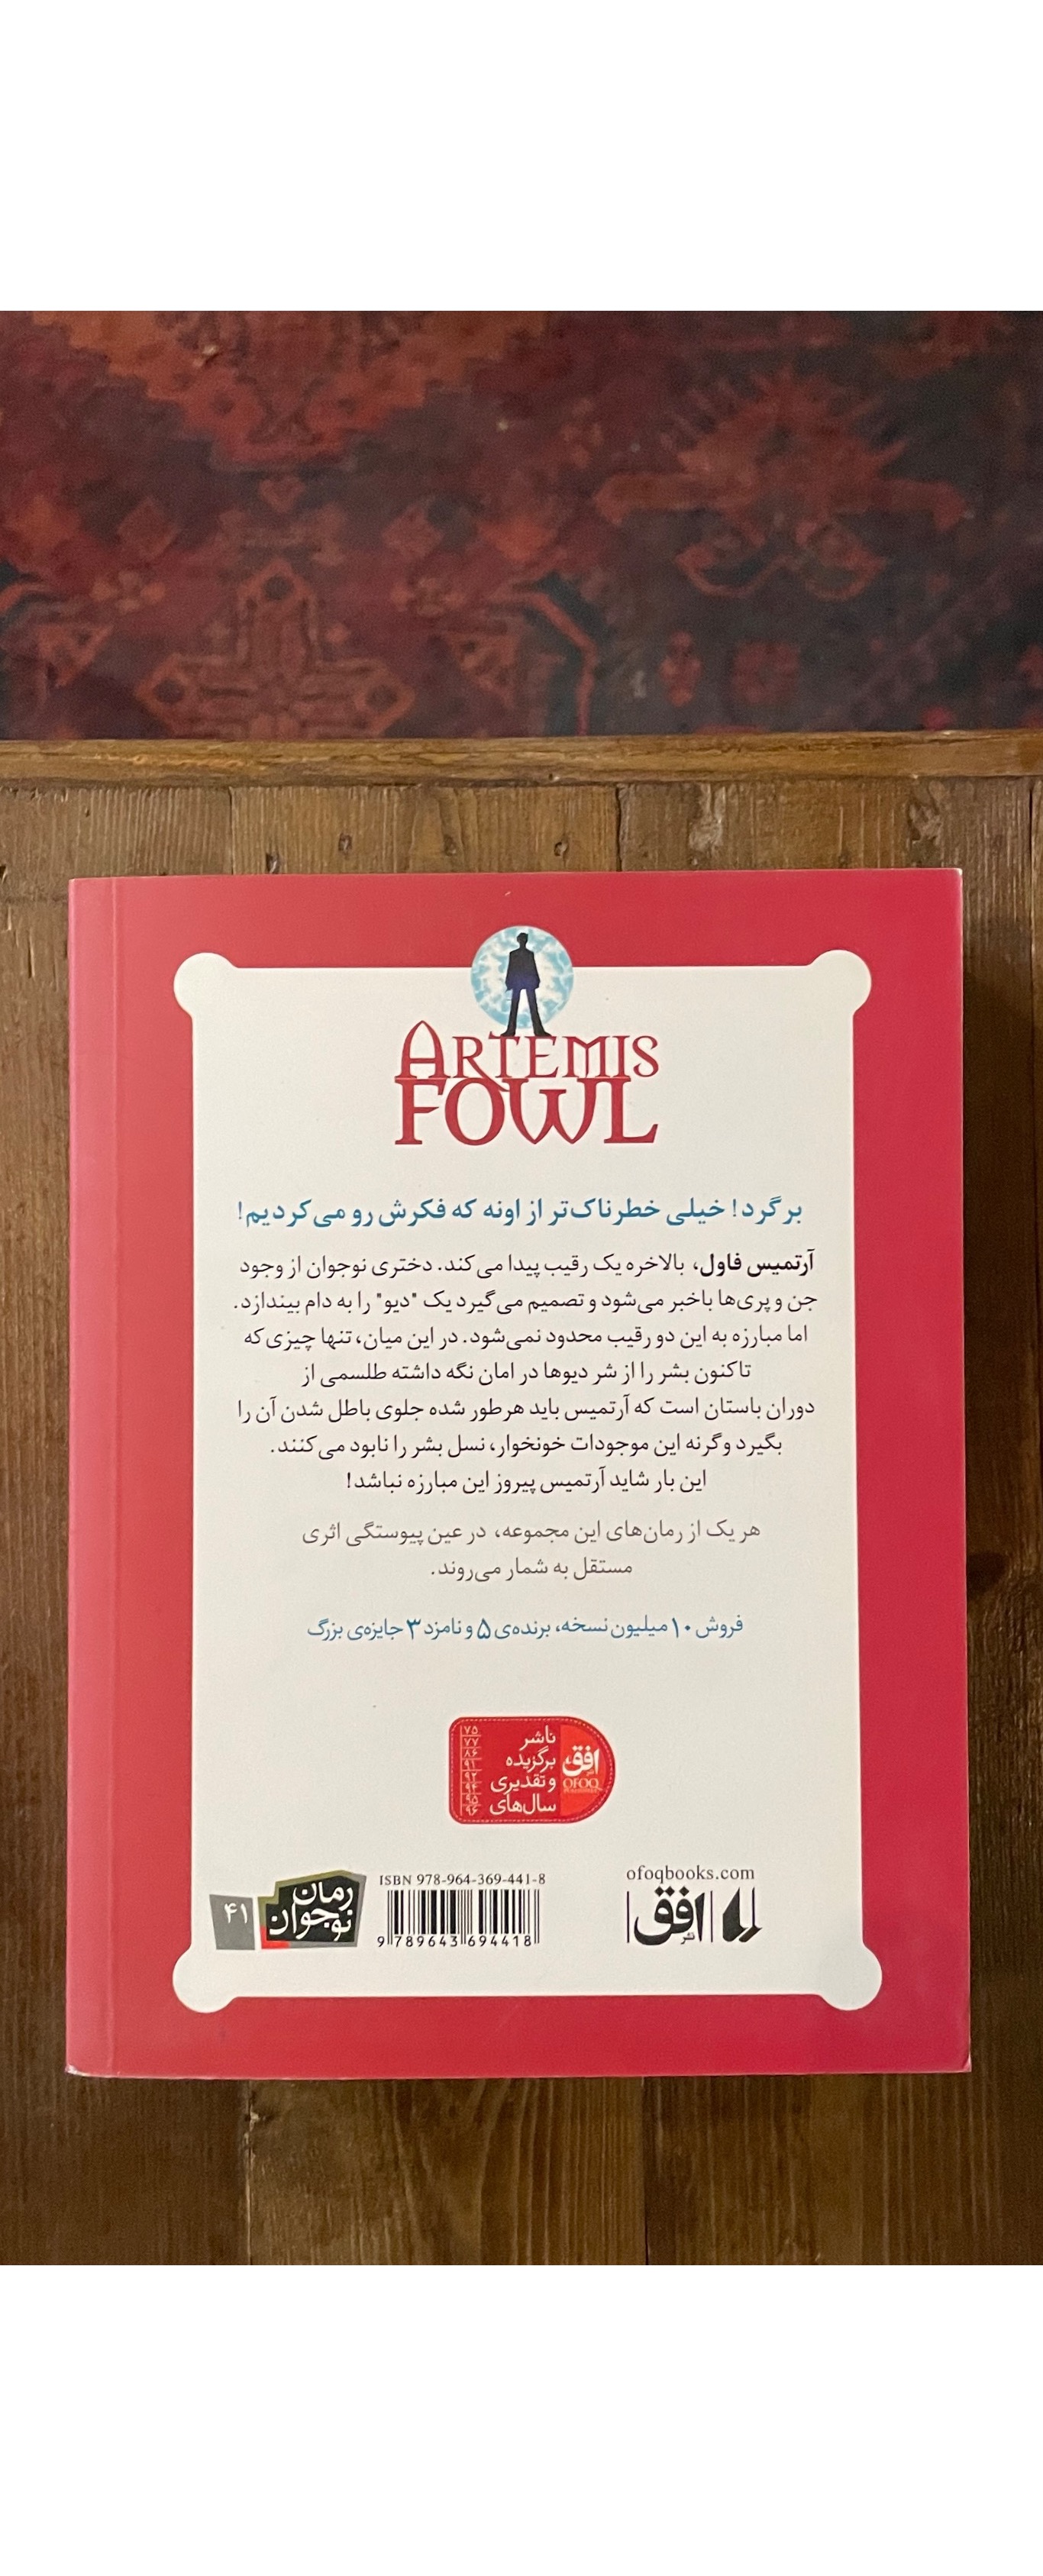 ARTEMIS
FOWL
برگرد! خیلی خطرناک‌تر از اونه که فکرش رو می‌کردیم!
آرتمیس فاول، بالاخره یک رقیب پیدا می‌کند. دختری نوجوان از وجود
جن و پری‌ها باخبر می‌شود و تصمیم می‌گیرد یک "دیو" را به دام بیندازد.
اما مبارزه به این دو رقیب محدود نمی‌شود. در این میان، تنها چیزی که
تاکنون بشر را از شر دیوها در امان نگه داشته طلسمی از
دوران باستان است که آرتمیس باید هرطور شده جلوی باطل شدن آن را
بگیرد وگرنه این موجودات خونخوار، نسل بشر را نابود می‌کنند.
این بار شاید آرتمیس پیروز این مبارزه نباشد!
هر یک از رمان‌های این مجموعه، در عین پیوستگی اثری
مستقل به شمار می‌روند.
فروش ۱۰ میلیون نسخه، برنده‌ی ۵ و نامزد ۳ جایزه‌ی بزرگ
افق
OFOQ
ناشر
برگزیده
و تقدیری
سال‌های
۷۵
۷۷
۸۶
۹۱
۹۲
۹۴
۹۵
۹۶
ofoqbooks.com
نشر افق
ISBN 978-964-369-441-8
9 789643 694418
رمان
نوجوان
۴۱